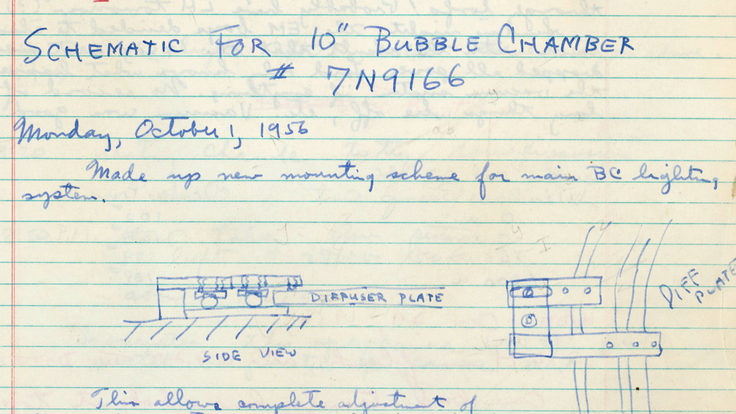 SCHEMATIC FOR 10" BUBBLE CHAMBER
# 7N9166
Monday, October 1, 1956
Made up new mounting scheme for main BC lighting
system.
DIFFUSER PLATE
DIFF
PLATE
SIDE VIEW
This allows complete adjustment of